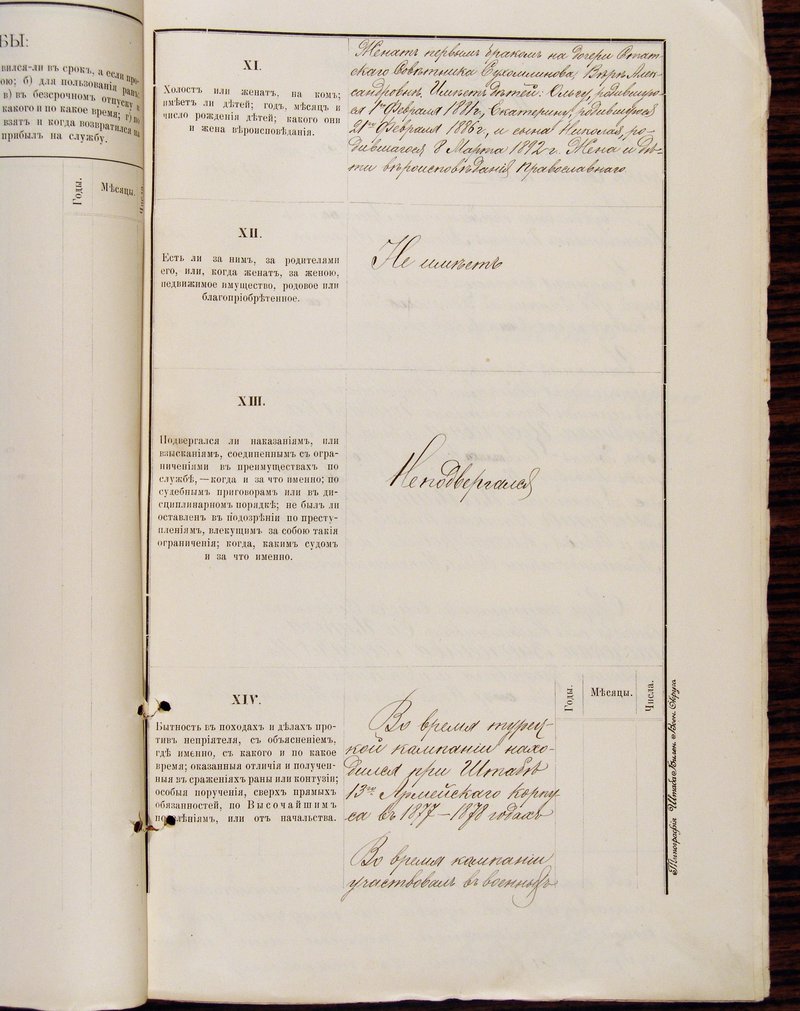 БЫ:
вился-ли въ срокъ, а если про-
ою; б) для пользованія ранъ:
в) въ безсрочномъ отпуску с
какого и по какое время; г) по
взятъ и когда возвратился на
прибылъ на службу.
Годы.
Мѣсяцы.
XI.
Холостъ или женатъ, на комъ;
имѣетъ ли дѣтей; годъ, мѣсяцъ и
число рожденія дѣтей; какого они
и жена вѣроисповѣданія.
Женатъ первымъ бракомъ на дочери Стат-
скаго Совѣтника Сухомлинова, Вѣрѣ Алек-
сандровнѣ. Имѣетъ дѣтей: Ольгу, родившую-
ся Февраля 1881 г, Екатерину, родившуюся
21го Февраля 1886 г, и сына Николая, ро-
дившагося 8 Марта 1892 г. Жена и дѣ-
ти вѣроисповѣданія Православнаго
XII.
Есть ли за нимъ, за родителями
его, или, когда женатъ, за женою,
недвижимое имущество, родовое или
благопріобрѣтенное.
Не имѣетъ
XIII.
Подвергался ли наказаніямъ, или
взысканіямъ, соединеннымъ съ огра-
ниченіями въ преимуществахъ по
службѣ,—когда и за что именно; по
судебнымъ приговорамъ или въ ди-
сциплинарномъ порядкѣ; не былъ ли
оставленъ въ подозрѣніи по престу-
пленіямъ, влекущимъ за собою такія
ограниченія; когда, какимъ судомъ
и за что именно.
Не подвергался
XIV.
Бытность въ походахъ и дѣлахъ про-
тивъ непріятеля, съ объясненіемъ,
гдѣ именно, съ какого и по какое
время; оказанныя отличія и получен-
ныя въ сраженіяхъ раны или контузіи;
особыя порученія, сверхъ прямыхъ
обязанностей, по Высочайшимъ
повелѣніямъ, или отъ начальства.
Годы.
Мѣсяцы.
Числа.
Во время турец-
кой кампаніи нахо-
дился при Штабѣ
13го Армейскаго корпу
са въ 1877—1878 годахъ
Во время кампаніи
участвовалъ въ военныхъ
Типографія Штаба Вилен. Воен. Округа